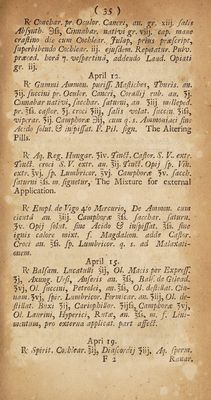 ( 35 )
℞ Conchar. pr. Oculor. Cancri, an. gr. xiij. salis
Absynth. ℈ss, Cinnabar. nativi gr. viij. cap. mane
crastino die cum Cochlear. Julap. prius præscript.
superbibendo Cochlear. iij. ejusdem. Repetatur. Pulv.
præced. horâ 7. vespertinâ, addendo Laud. Opiati
gr. iij.
April 12.
℞ Gummi Ammon. puriss. Mastiches, Thuris. an.
ʒij. succini pr. Oculor. Cancri, Corally rub. an. ʒj.
Cinnabar nativi, sacchar. saturni, an ʒiij milleped.
pr. ʒß. castor. ʒj. croci ʒiij, salis volat. succin ʒss,
viperar. ʒiij Camphoræ ʒij, cum q. s. Ammoniaci sine
Acido solut. & inspissat. F. Pil. sign. The Altering
Pills.
℞ Aq. Reg. Hungar. ℥iv. Tinct. Castor. S. V. extr.
Tinct. croci S. V. extr. an. ℥ij. Tinct. Opij Sp. Vin.
extr. ℥iv. sp. Lumbricor. ℥vj. Camphoræ ℥v. sacch.
saturni ℥s. m. signetur, The Mixture for external
Application.
℞ Empl. de Vigo 4to Mercurio, De Ammon. cum
cicutâ an. ℥iij. Camphoræ ℥ß. sacchar. saturn.
ʒv. Opij solut. sine Acido & inspissat, ℥ß. sine
ignis calore mixt. f. Magdalion. adde Castor.
Croci an. ℥ß. sp. Lumbricor. q. s. ad Malaxationem.
April 15.
℞ Balsam. Lucatulli ℥ij, Ol. Macis per Express.
℥j, Axung. Ursi, Anseris an. ℥ß, Bals. de Gilead.
ʒvj, Ol. succini, Petrolei, an. ℥ß, Ol. destillat. Cinnam.
ʒvj, spir. Lumbricor. Formicar. an. ℥iij, Ol. destillat.
Buxi ℥ij, Cariophillor. ℥ijß, Camphoræ ʒvj,
Ol. Laurini, Hyperici, Rutæ, an. ℥ß, m. f. Linimentum,
pro externa applicat. part affect.
Apri 19.
℞ Spirit. Cochlear. ℥ij, Diascordij ℥iij, Aq. sperm.
F 2
Ranar.